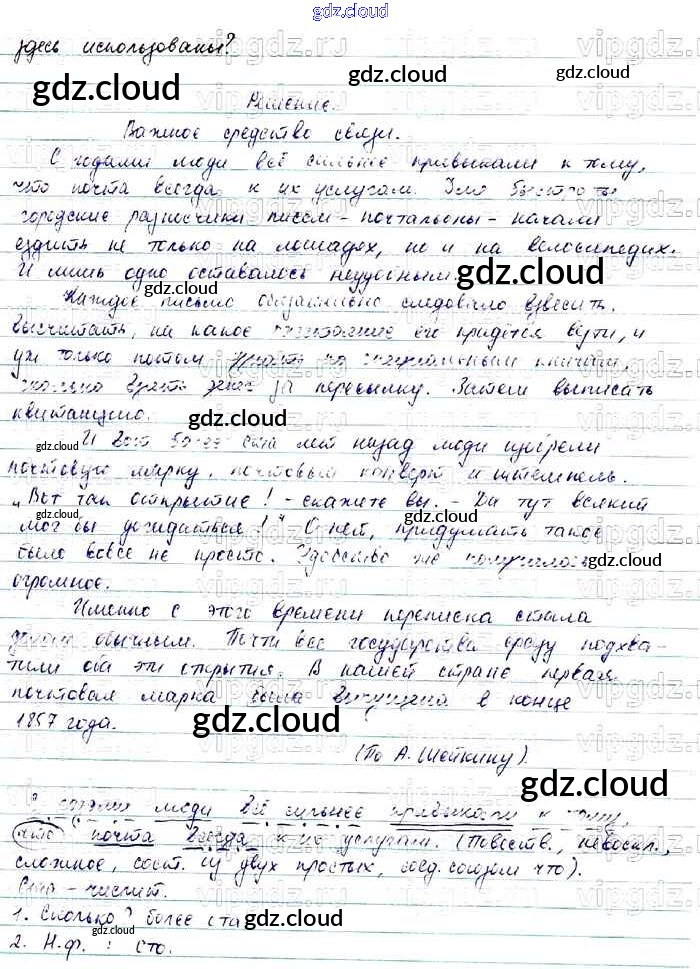 gdz.cloud
здесь использованы?
Решение.
Важное средство связи.
С годами люди всё сильнее привыкали к тому,
что почта всегда к их услугам.
городские разносчики писем - почтальоны - начали
ездить не только на лошадях, но и на велосипедах.
И лишь одно оставалось неудобным
Каждое письмо обязательно следовало взвесить,
высчитать, на какое расстояние его придётся везти, и
уж только потом узнать по специальным книгам,
сколько взять денег за пересылку. Затем выписать
квитанцию.
И вот более ста лет назад люди изобрели
почтовую марку, почтовый конверт и штемпель.
„Вот так открытие! - скажете вы. - Да тут всякий
мог бы догадаться!" О нет, придумать такое
было вовсе не просто. Удобство же получилось
огромное.
Именно с этого времени переписка стала
делом обычным. Почти все государства сразу подхва-
тили оба эти открытия. В нашей стране первая
почтовая марка была выпущена в конце
1857 года.
(По А. Шейкину).
С годами люди всё сильнее привыкали к тому,
что почта всегда к их услугам. (Повеств., невоскл.,
сложное, сост. из двух простых, соед. союзом что).
Ста - числит.
1. Сколько? более ста
2. Н.ф.: сто.